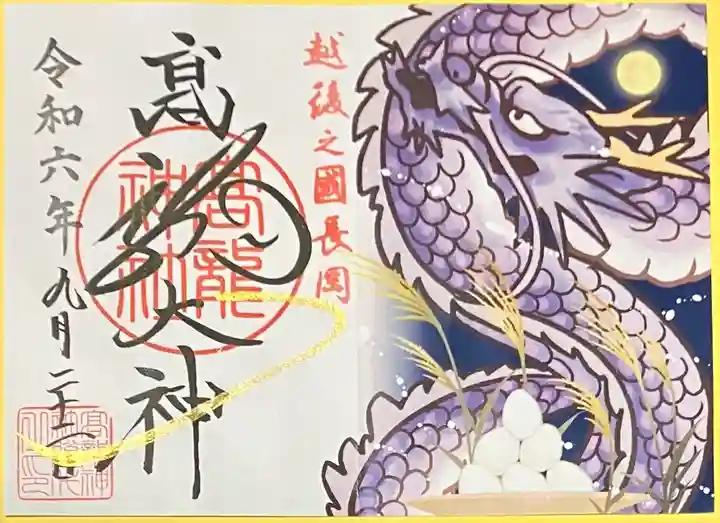 越後之國長岡
高龍大神
高龍
神社
令和六年九月二十二日